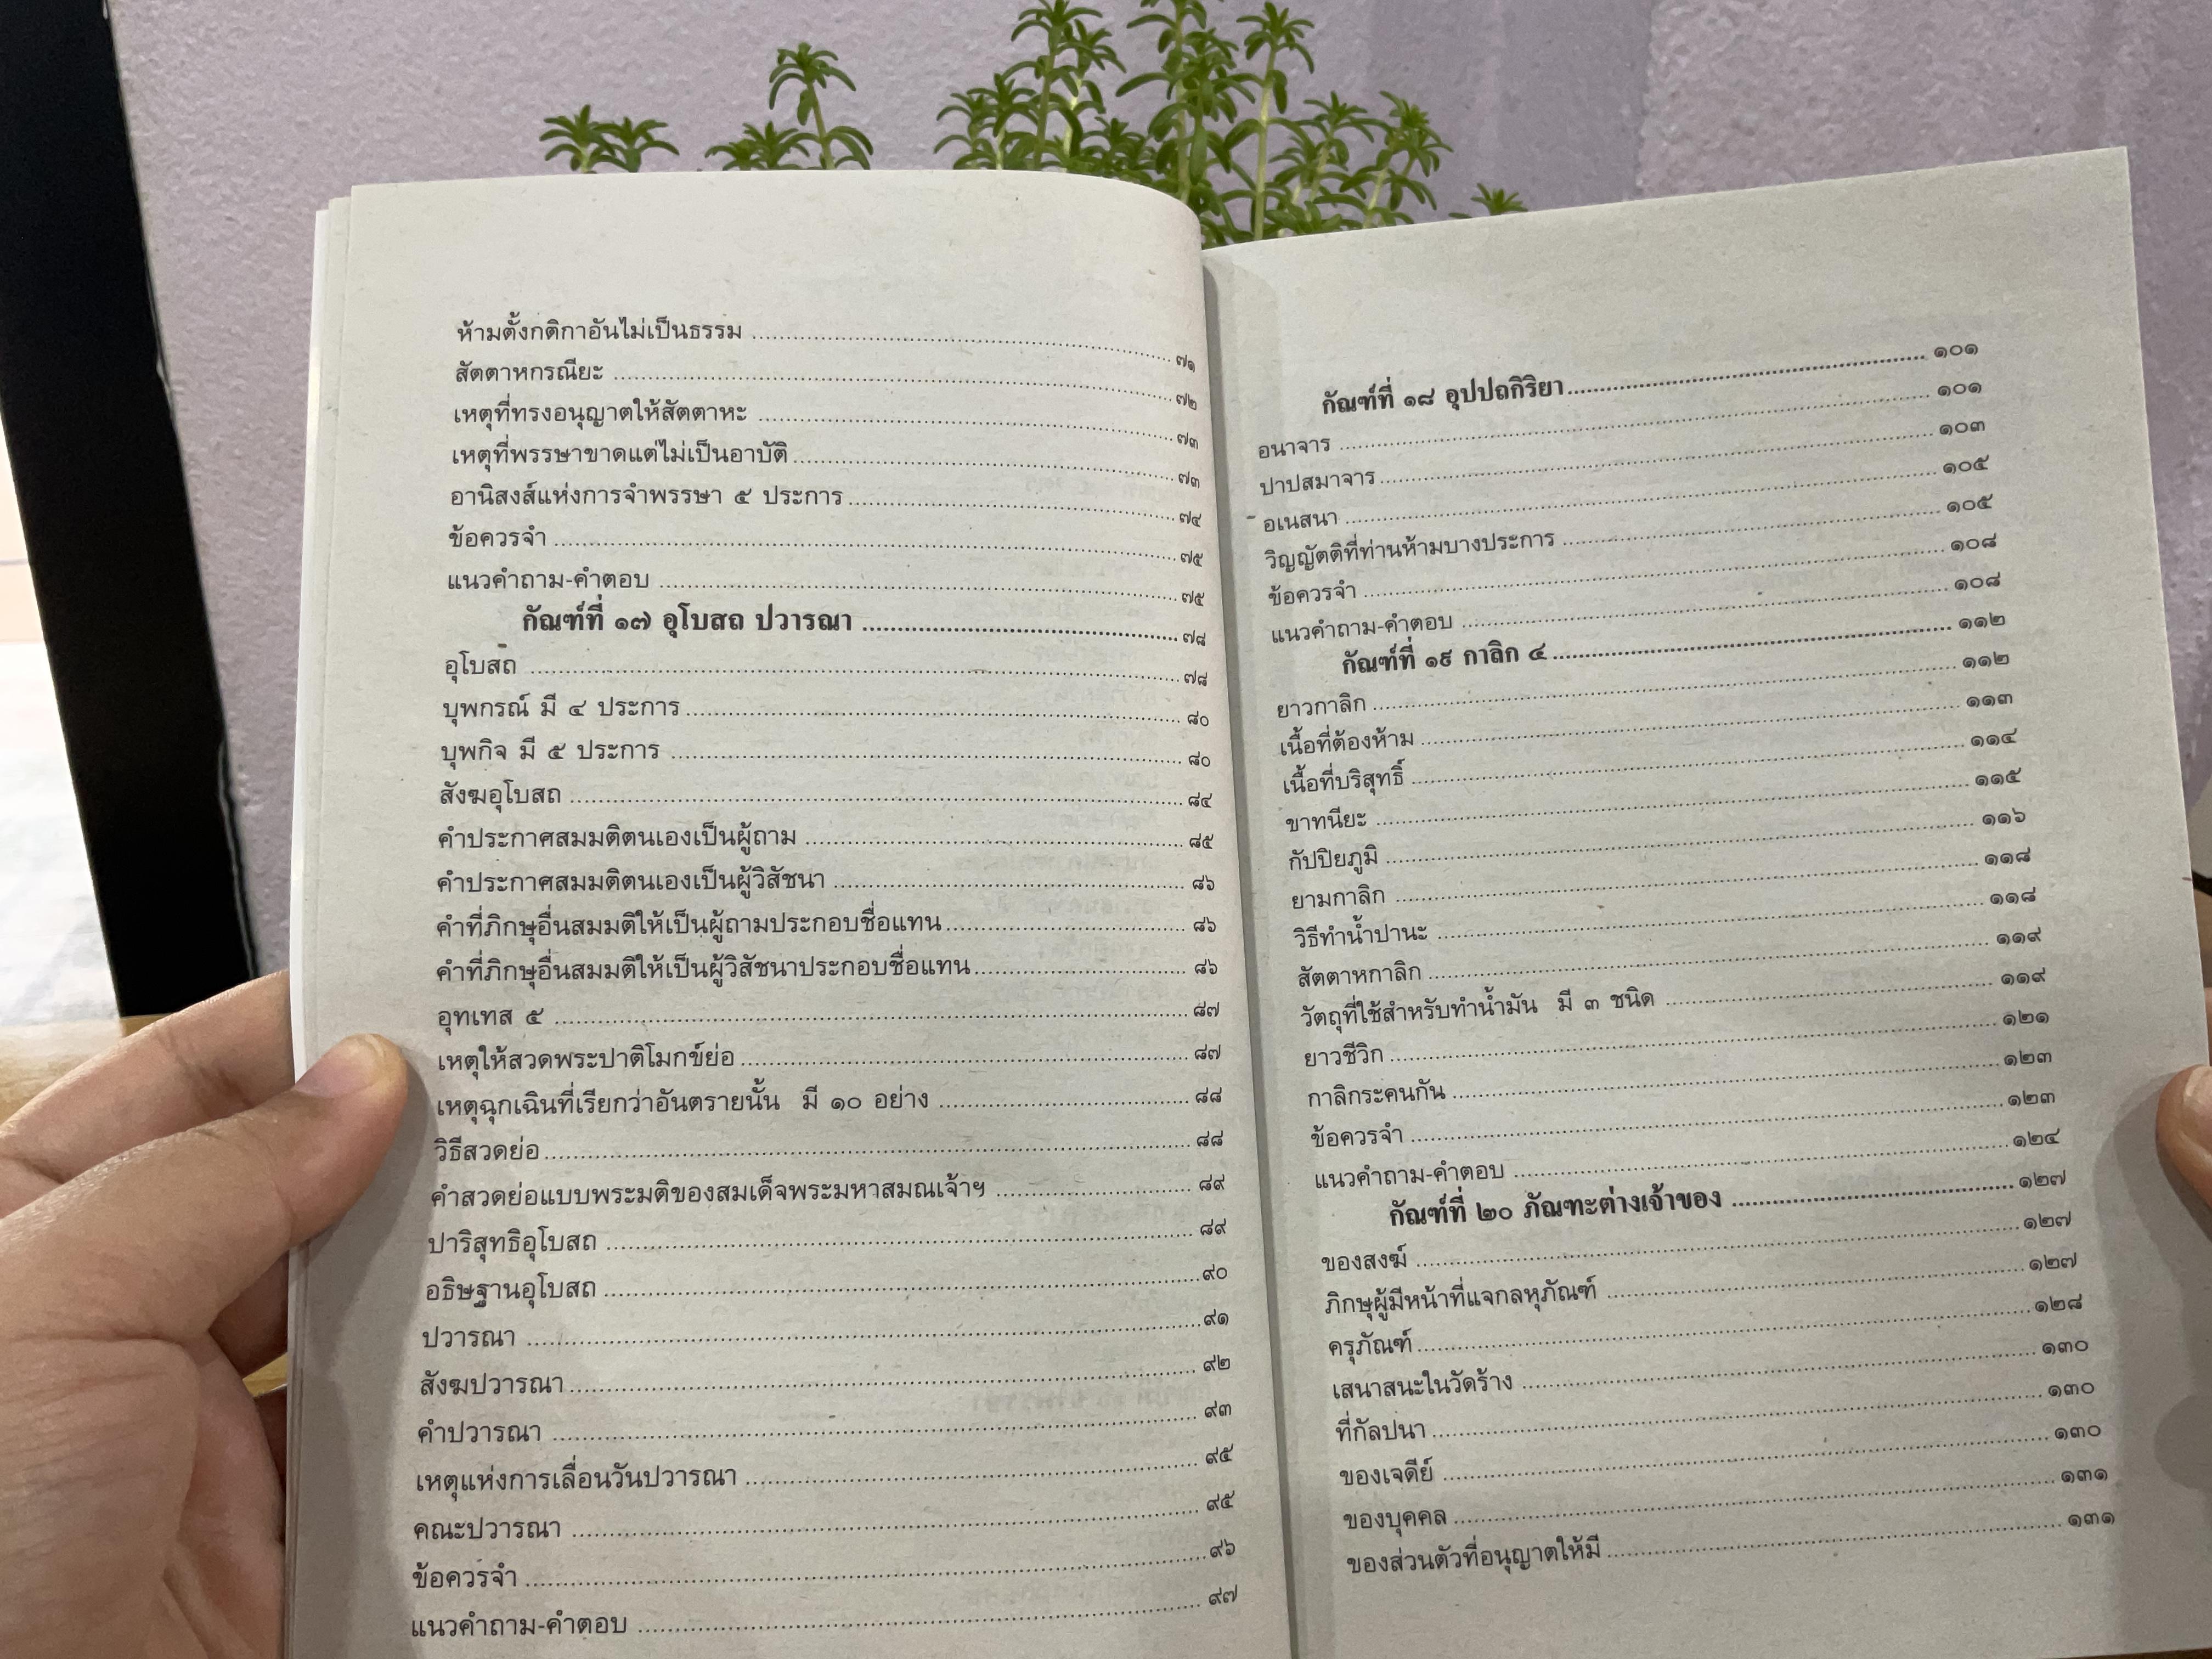 ห้ามตั้งกติกาอันไม่เป็นธรรม ๗๑
สัตตาหกรณียะ ๗๒
เหตุที่ทรงอนุญาตให้สัตตาหะ ๗๓
เหตุที่พรรษาขาดแต่ไม่เป็นอาบัติ ๗๓
อานิสงส์แห่งการจำพรรษา ๕ ประการ ๗๔
ข้อควรจำ ๗๕
แนวคำถาม-คำตอบ ๗๕
กัณฑ์ที่ ๑๗ อุโบสถ ปวารณา ๗๘
อุโบสถ ๗๘
บุพกรณ์ มี ๔ ประการ ๘๐
บุพกิจ มี ๕ ประการ ๘๐
สังฆอุโบสถ ๘๔
คำประกาศสมมติตนเองเป็นผู้ถาม ๘๕
คำประกาศสมมติตนเองเป็นผู้วิสัชนา ๘๖
คำที่ภิกษุอื่นสมมติให้เป็นผู้ถามประกอบชื่อแทน ๘๖
คำที่ภิกษุอื่นสมมติให้เป็นผู้วิสัชนาประกอบชื่อแทน ๘๖
อุทเทส ๕ ๘๗
เหตุให้สวดพระปาติโมกข์ย่อ ๘๗
เหตุฉุกเฉินที่เรียกว่าอันตรายนั้น มี ๑๐ อย่าง ๘๘
วิธีสวดย่อ ๘๘
คำสวดย่อแบบพระมติของสมเด็จพระมหาสมณเจ้าฯ ๘๙
ปาริสุทธิอุโบสถ ๘๙
อธิษฐานอุโบสถ ๙๐
ปวารณา ๙๑
สังฆปวารณา ๙๒
คำปวารณา ๙๓
เหตุแห่งการเลื่อนวันปวารณา ๙๕
คณะปวารณา ๙๕
ข้อควรจำ ๙๖
แนวคำถาม-คำตอบ ๙๗
กัณฑ์ที่ ๑๘ อุปปถกิริยา ๑๐๑
อนาจาร ๑๐๑
ปาปสมาจาร ๑๐๓
อเนสนา ๑๐๕
วิญญัตติที่ท่านห้ามบางประการ ๑๐๕
ข้อควรจำ ๑๐๘
แนวคำถาม-คำตอบ ๑๐๘
กัณฑ์ที่ ๑๙ กาลิก ๔ ๑๑๒
ยาวกาลิก ๑๑๒
เนื้อที่ต้องห้าม ๑๑๓
เนื้อที่บริสุทธิ์ ๑๑๔
ขาทนียะ ๑๑๕
กัปปิยภูมิ ๑๑๖
ยามกาลิก ๑๑๘
วิธีทำน้ำปานะ ๑๑๘
สัตตาหกาลิก ๑๑๙
วัตถุที่ใช้สำหรับทำน้ำมัน มี ๓ ชนิด ๑๑๙
ยาวชีวิก ๑๒๑
กาลิกระคนกัน ๑๒๓
ข้อควรจำ ๑๒๓
แนวคำถาม-คำตอบ ๑๒๔
กัณฑ์ที่ ๒๐ ภัณฑะต่างเจ้าของ ๑๒๗
ของสงฆ์ ๑๒๗
ภิกษุผู้มีหน้าที่แจกลหุภัณฑ์ ๑๒๗
ครุภัณฑ์ ๑๒๘
เสนาสนะในวัดร้าง ๑๓๐
ที่กัลปนา ๑๓๐
ของเจดีย์ ๑๓๐
ของบุคคล ๑๓๑
ของส่วนตัวที่อนุญาตให้มี ๑๓๑